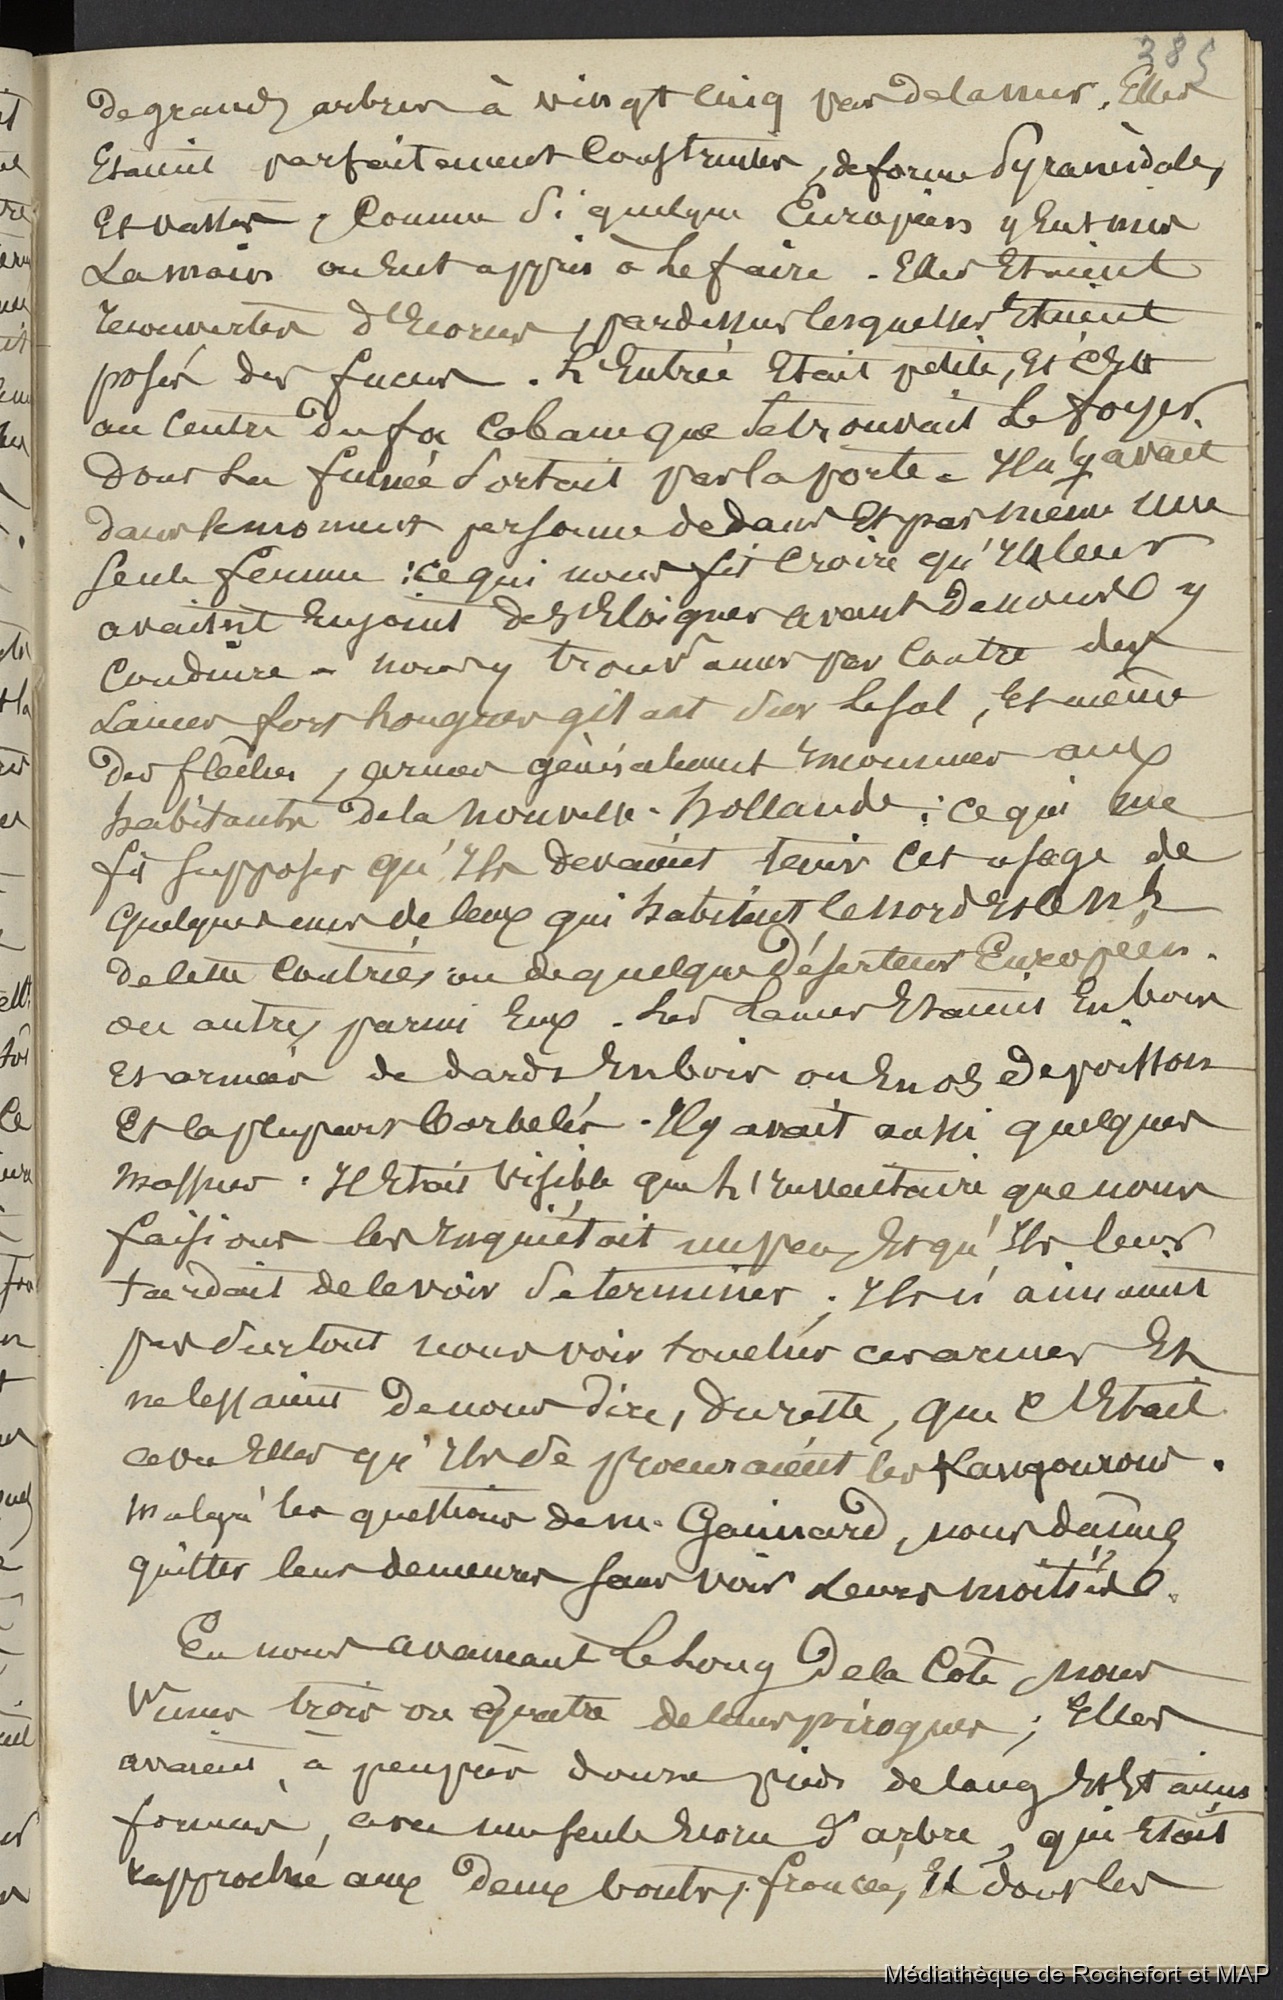 385
de grands arbres à vingt cinq pas de la mer. Elles
Etaient parfaitement Construites, de forme Pyramidale,
Et vastes, Comme Si quelque Européens y Eut mis
La main ou Eut appris à Le faire. Elles Etaient
recouvertes d'Ecorces, pardessus lesquelles Etaient
posés des fucus. L'Entrée Etait petite, Et c'Est
au Centre de la Cabane que Se trouvait Le foyer,
Dont La fumée Sortait par la porte. Il n'y avait
dans le moment personne dedans Et pas même une
Seule femme : ce qui nous fit Croire qu'Ils leur
avaient Enjoint de S'Eloigner avant de nous y
Conduire. nous y trouvâmes par Contre des
Lances fort Longues gisant Sur Le Sol, Et même
Des flèches, armes généralement inconnues aux
habitants de la nouvelle-hollande : ce qui me
fit Supposer qu'Ils devaient tenir Cet usage de
Quelques uns de Ceux qui habitent le nord Et le
de cette Contrée, ou de quelque Déserteur Européen.
ou autre, parmi Eux. Les Lances Etaient En bois
Et armées de dards En bois ou En os de poisson
Et la plupart barbelés. Il y avait aussi quelques
massues. Il Etait Visible que L'inventaire que nous
faisions les inquiétait un peu, Et qu'Ils leur
tardait de le voir Se terminer ; Ils n'aimaient
pas Surtout nous voir toucher ces armes Et
ne Cessaient de nous dire, du reste, que C'Etait
avec Elles qu'Ils Se procuraient les Kangourous.
Malgré les questions de M. Gaimard, nous dûmes
quitter leurs demeures Sans voir Leurs moitiés.
En nous avançant Le Long de la Côte, nous
Vîmes trois ou Quatre de leurs pirogues ; Elles
avaient à peu près douze pieds de long Et Etaient
formées, avec une Seule Ecorce d'arbre, qui Etait
rapprochée aux deux bouts, froncée, Et dont les
Médiathèque de Rochefort et MAP